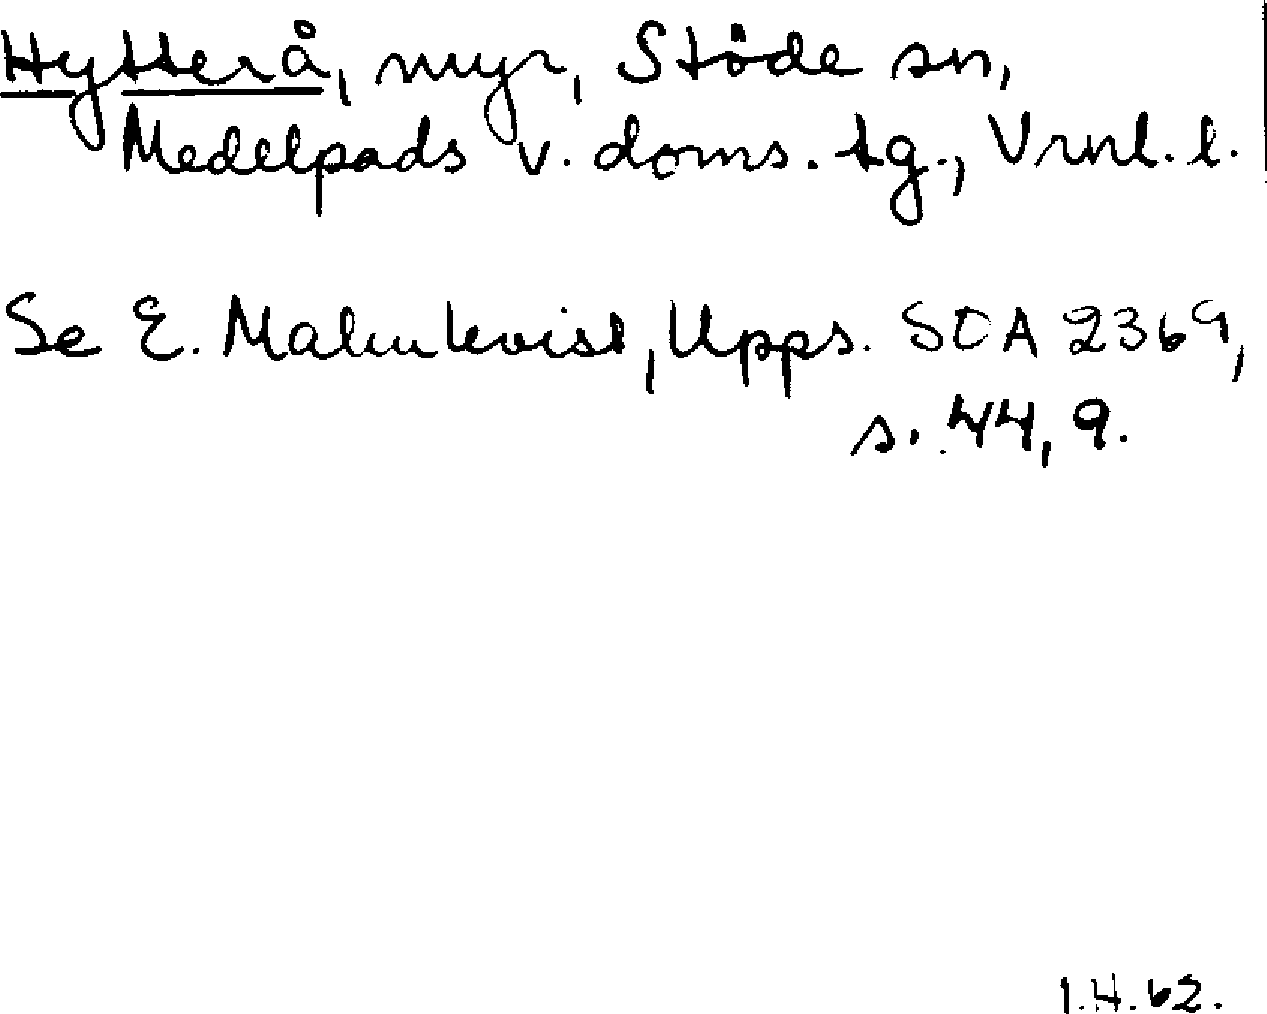 Hytterå, myr, Stöde sn,
Medelpads v. doms. tg., Vrnl. l.
Se E. Malmkvist, Upps. SOA 2369,
s. 44, 9.
I.H. 62.